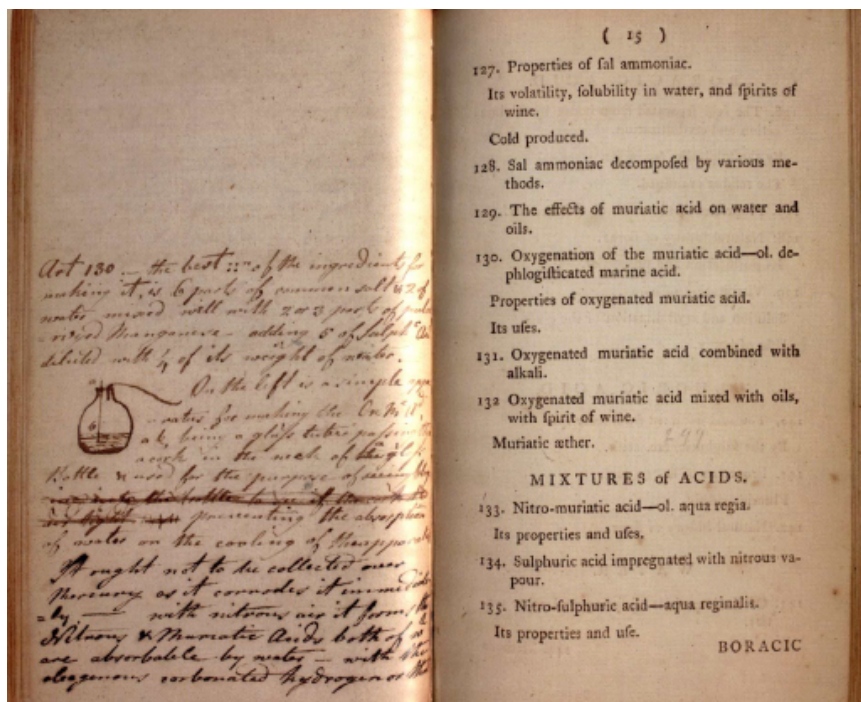 Art 130 — the best :: n of the ingredients for
making it, is 6 parts of common salt & 2 of
water mixed well with 2 or 3 parts of
Manganese — adding 5 of Sulph
diluted with ¼ of its weight of water.
On the left is a simple
for making the Ox
a b, being a glass tube passing
a cork in the neck of the
Bottle & used for the purpose of
preventing the absorption
of water on the cooling of the
It ought not to be collected over
Mercury as it corrodes it
with nitrous air it forms
Nitrous & Muriatic Acids both of
are absorbable by water — with
carbonated hydrogen or
( 15 )
127. Properties of ſal ammoniac.
Its volatility, ſolubility in water, and ſpirits of
wine.
Cold produced.
128. Sal ammoniac decompoſed by various me-
thods.
129. The effects of muriatic acid on water and
oils.
130. Oxygenation of the muriatic acid—ol. de-
phlogiſticated marine acid.
Properties of oxygenated muriatic acid.
Its uſes.
131. Oxygenated muriatic acid combined with
alkali.
132 Oxygenated muriatic acid mixed with oils,
with ſpirit of wine.
Muriatic æther.
MIXTURES of ACIDS.
133. Nitro-muriatic acid—ol. aqua regia.
Its properties and uſes.
134. Sulphuric acid impregnated with nitrous va-
pour.
135. Nitro-ſulphuric acid—aqua reginalis.
Its properties and uſe.
BORACIC